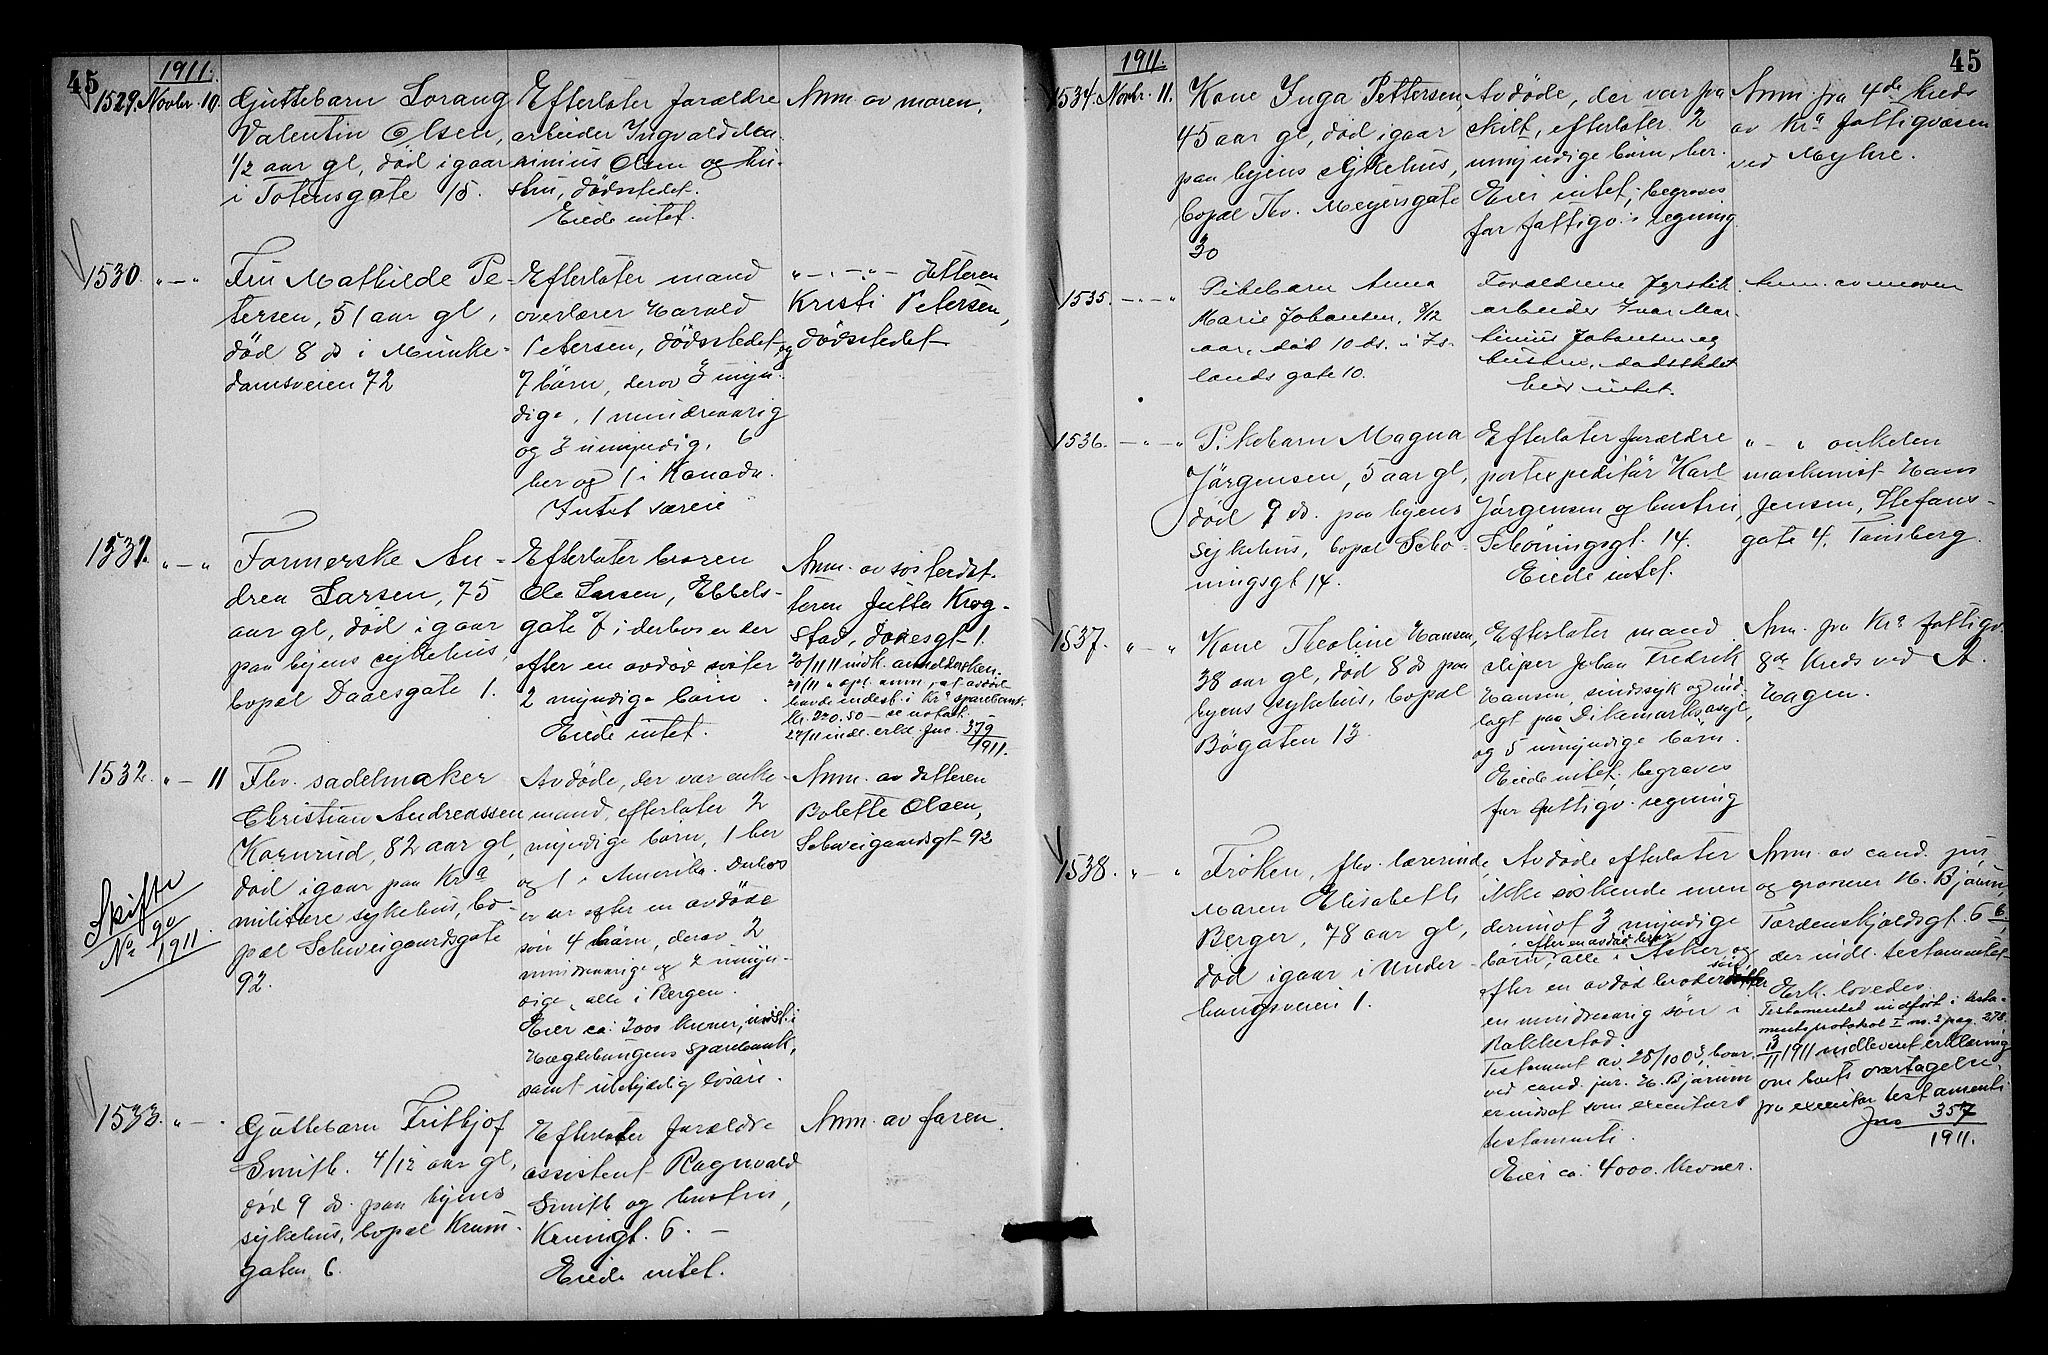 45
1911.
1529. Novbr. 10.
Guttebarn Lorang
Valentin Olsen,
1/2 aar gl, død igaar
i Totensgate 15.
Efterlater forældre
arbeider Ingvald Ma-
rinius Olsen og hu-
stru, dødsstedet.
Eiede intet.
Anm. av moren,
1530. " — "
Fru Mathilde Pe-
tersen, 51 aar gl,
død 8 ds i Munke-
damsveien 72
Efterlater mand
overlærer Harald
Petersen, dødsstedet og
7 børn, derav 3 myn-
dige, 1 mindreaarig
og 3 umyndig, 6
her og 1 i Kanada.
Intet særeie
" — " — " — datteren
Kristi Petersen,
dødsstedet
1531. " — "
Farmerske An-
drea Larsen, 75
aar gl, død igaar
paa byens sykehus,
bopæl Daaesgate 1.
Efterlater broren
Ole Larsen, Ebbels-
gate 7 iderhos er der
efter en avdød søster
2 myndige børn.
Eiede intet.
Anm. av søsterdat-
teren Jutta Krog-
stad, Daaesgt 1.
20/11 11 indk. anmeldersken.
21/11 " opl. anm. at avdøde
havde indest. i Kra sparebank
kr. 220,50 — se notat.
27/11 indl. erkl. Jno. 379
1911.
1532. " — 11
Skifte
No 90
1911.
Fhv. sadelmaker
Christian Andreassen
Kornrud, 82 aar gl,
død igaar paa Kra
militære sykehus, bo-
pæl Schweigaardsgate
92.
Avdøde, der var enke-
mand, efterlater 2
myndige børn, 1 her
og 1 i Amerika. Derhos
er der efter en avdøde
søn 4 børn, derav 2
mindreaarige og 2 umyn-
dige, alle i Bergen.
Eier ca: 2000 kroner, indst. i
Hægdehaugens Sparebank,
samt ubetydelig løsøre.
Anm. av datteren
Bolette Olsen,
Schweigaardsgt 92
1533. " —
Guttebarn Fritbjof
Smith. 4/12 aar gl,
død 9 ds. paa byens
sykehus, bopæl Krum-
gaten 6.
Efterlater forældre
assistent Ragnvald
Smith og hustru,
Krumgt. 6. —
Eiede intet.
Anm. av faren.
45
1911.
1534. Novbr. 11.
Kone Inga Pettersen,
45 aar gl, død igaar
paa byens sykehus,
bopæl Thv. Meyersgate
30
Avdøde, der var fra
skilt, efterlater 2
umyndige børn, her.
Eier intet; begraves
for fattigv.s regning
Anm. fra 4de kreds
av Kra fattigvæsen
ved Myhre.
1535. — " — "
Pikebarn Anna
Marie Johansen, 8/12
aar, død 10 ds. i Is-
lands gate 10.
Forældrene Fyrstik
arbeider Ivar Mar-
tinius Johansen og
hustru, dødsstedet
Eier intet.
Anm. av moren
1536. — " — "
Pikebarn Magna
Jørgensen, 5 aar gl,
død 9 ds. paa byens
sykehus, bopæl Schø-
ningsgt 14.
Efterlater forældre
postexpeditør Karl
Jørgensen og hustru,
Schøningsgt. 14.
Eiede intet.
" — " onkelen
maskinist Hans
Jensen, Stefans-
gate 4, Tønsberg.
1537. " — "
Kone Theoline Hansen,
38 aar gl, død 8 ds paa
byens sykehus, bopæl
Bøgaten 13
Efterlater mand
sliper Johan Fredrik
Hansen, sindssyk og ind-
lagt paa Dikemarks asyl,
og 5 umyndige børn.
Eiede intet; begraves
for fattigv. regning
Anm. fra Kra fattigv.
8de Kreds ved A.
Hagen.
1538. " — "
Frøken, fhv. lærerinde,
Maren Elisabeth
Berger, 78 aar gl,
død igaar i Under-
haugsveien 1.
Avdøde efterlater
ikke søskende men
derimot 3 myndige
efter en avdød bror
børn, alle i Asker og
søn
efter en avdød broder
en mindreaarig søn i
Rakkestad.
Testament av 25/10 03, hvor-
ved cand. jur. H. Bjørum
er indsat som executor
testamenti.
Eier ca: 4000. kroner.
Anm. av cand. jur.
og grosserer H. Bjørum,
Tordenskjoldsgt. 6 b,
der indl. testamentet
Erk. lovedes.
Testamentet indført i testa-
mentsprotokol I no. 2 pag. 278.
13/11 1911 indleveret erklæring
om boets overtagelse
fra executor testamenti
Jno 357
1911.